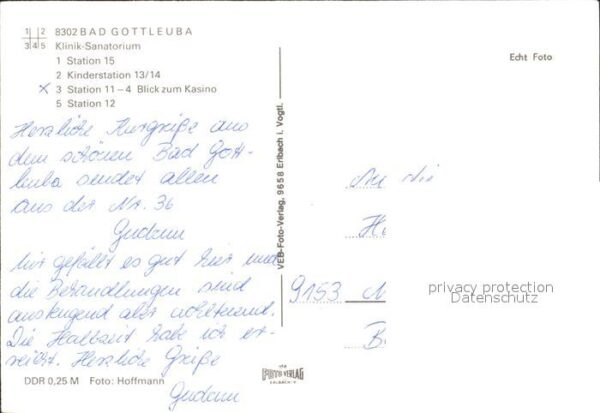 1 2 8302 BAD GOTTLEUBA
3 4 5 Klinik-Sanatorium
1 Station 15
2 Kinderstation 13/14
x 3 Station 11–4 Blick zum Kasino
5 Station 12
Echt Foto
Herzliche Kurgrüße aus
dem schönen Bad Gott-
leuba sendet allen
aus der Nr. 36
Gudrun
Mir gefällt es gut hier und
die Behandlungen sind
anstrengend aber wohltuend.
Die Halbzeit habe ich er-
reicht. Herzliche Grüße
Gudrun
DDR 0,25 M Foto: Hoffmann
VEB-Foto-Verlag, 9658 Erlbach i. Vogtl.
An die
9153
privacy protection
Datenschutz
VEB
FOTO VERLAG
ERLBACH V